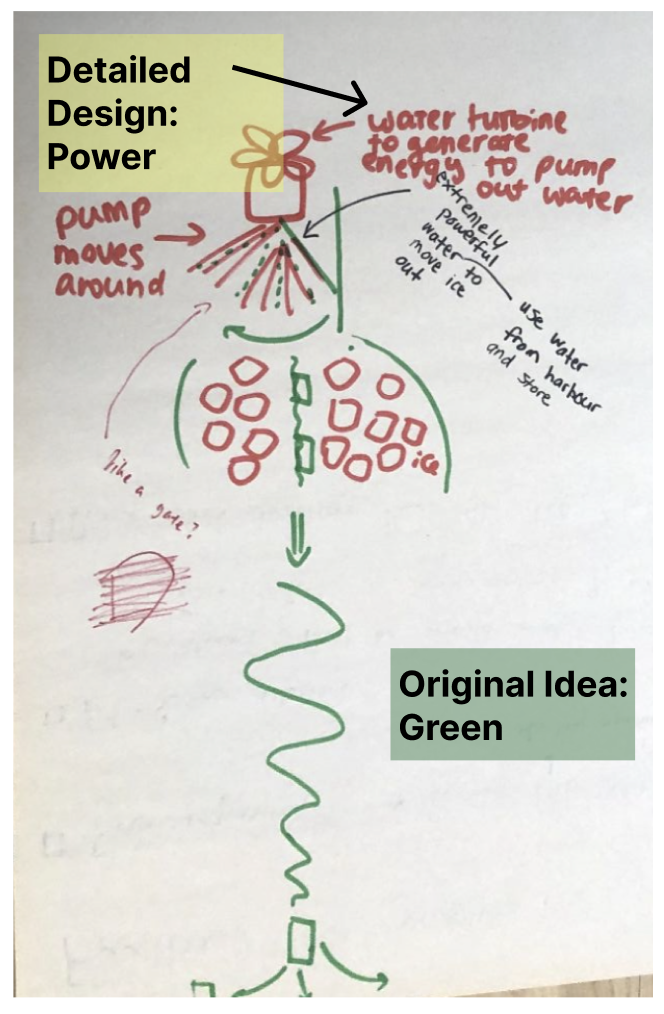 Detailed
Design:
Power
water turbine
to generate
energy to pump
out water
pump
moves
around
extremely
powerful
water to
move ice
out
use water
from harbour
and store
ice
like a gate?
Original Idea:
Green